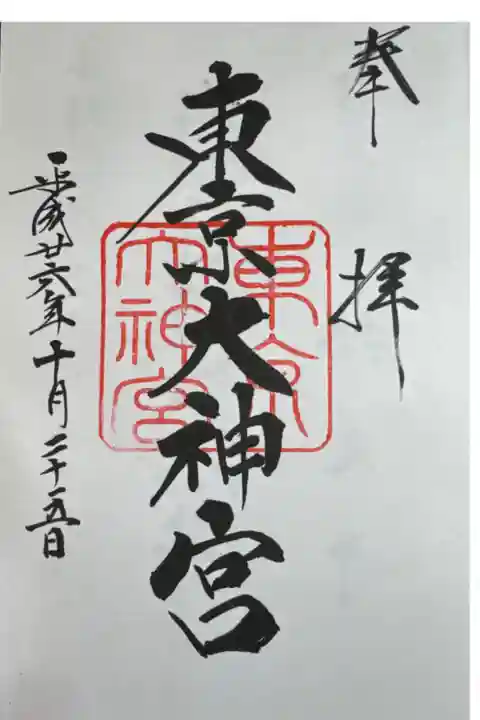 奉拝
東京大神宮
東京大神宮
平成廿六年十月二十五日